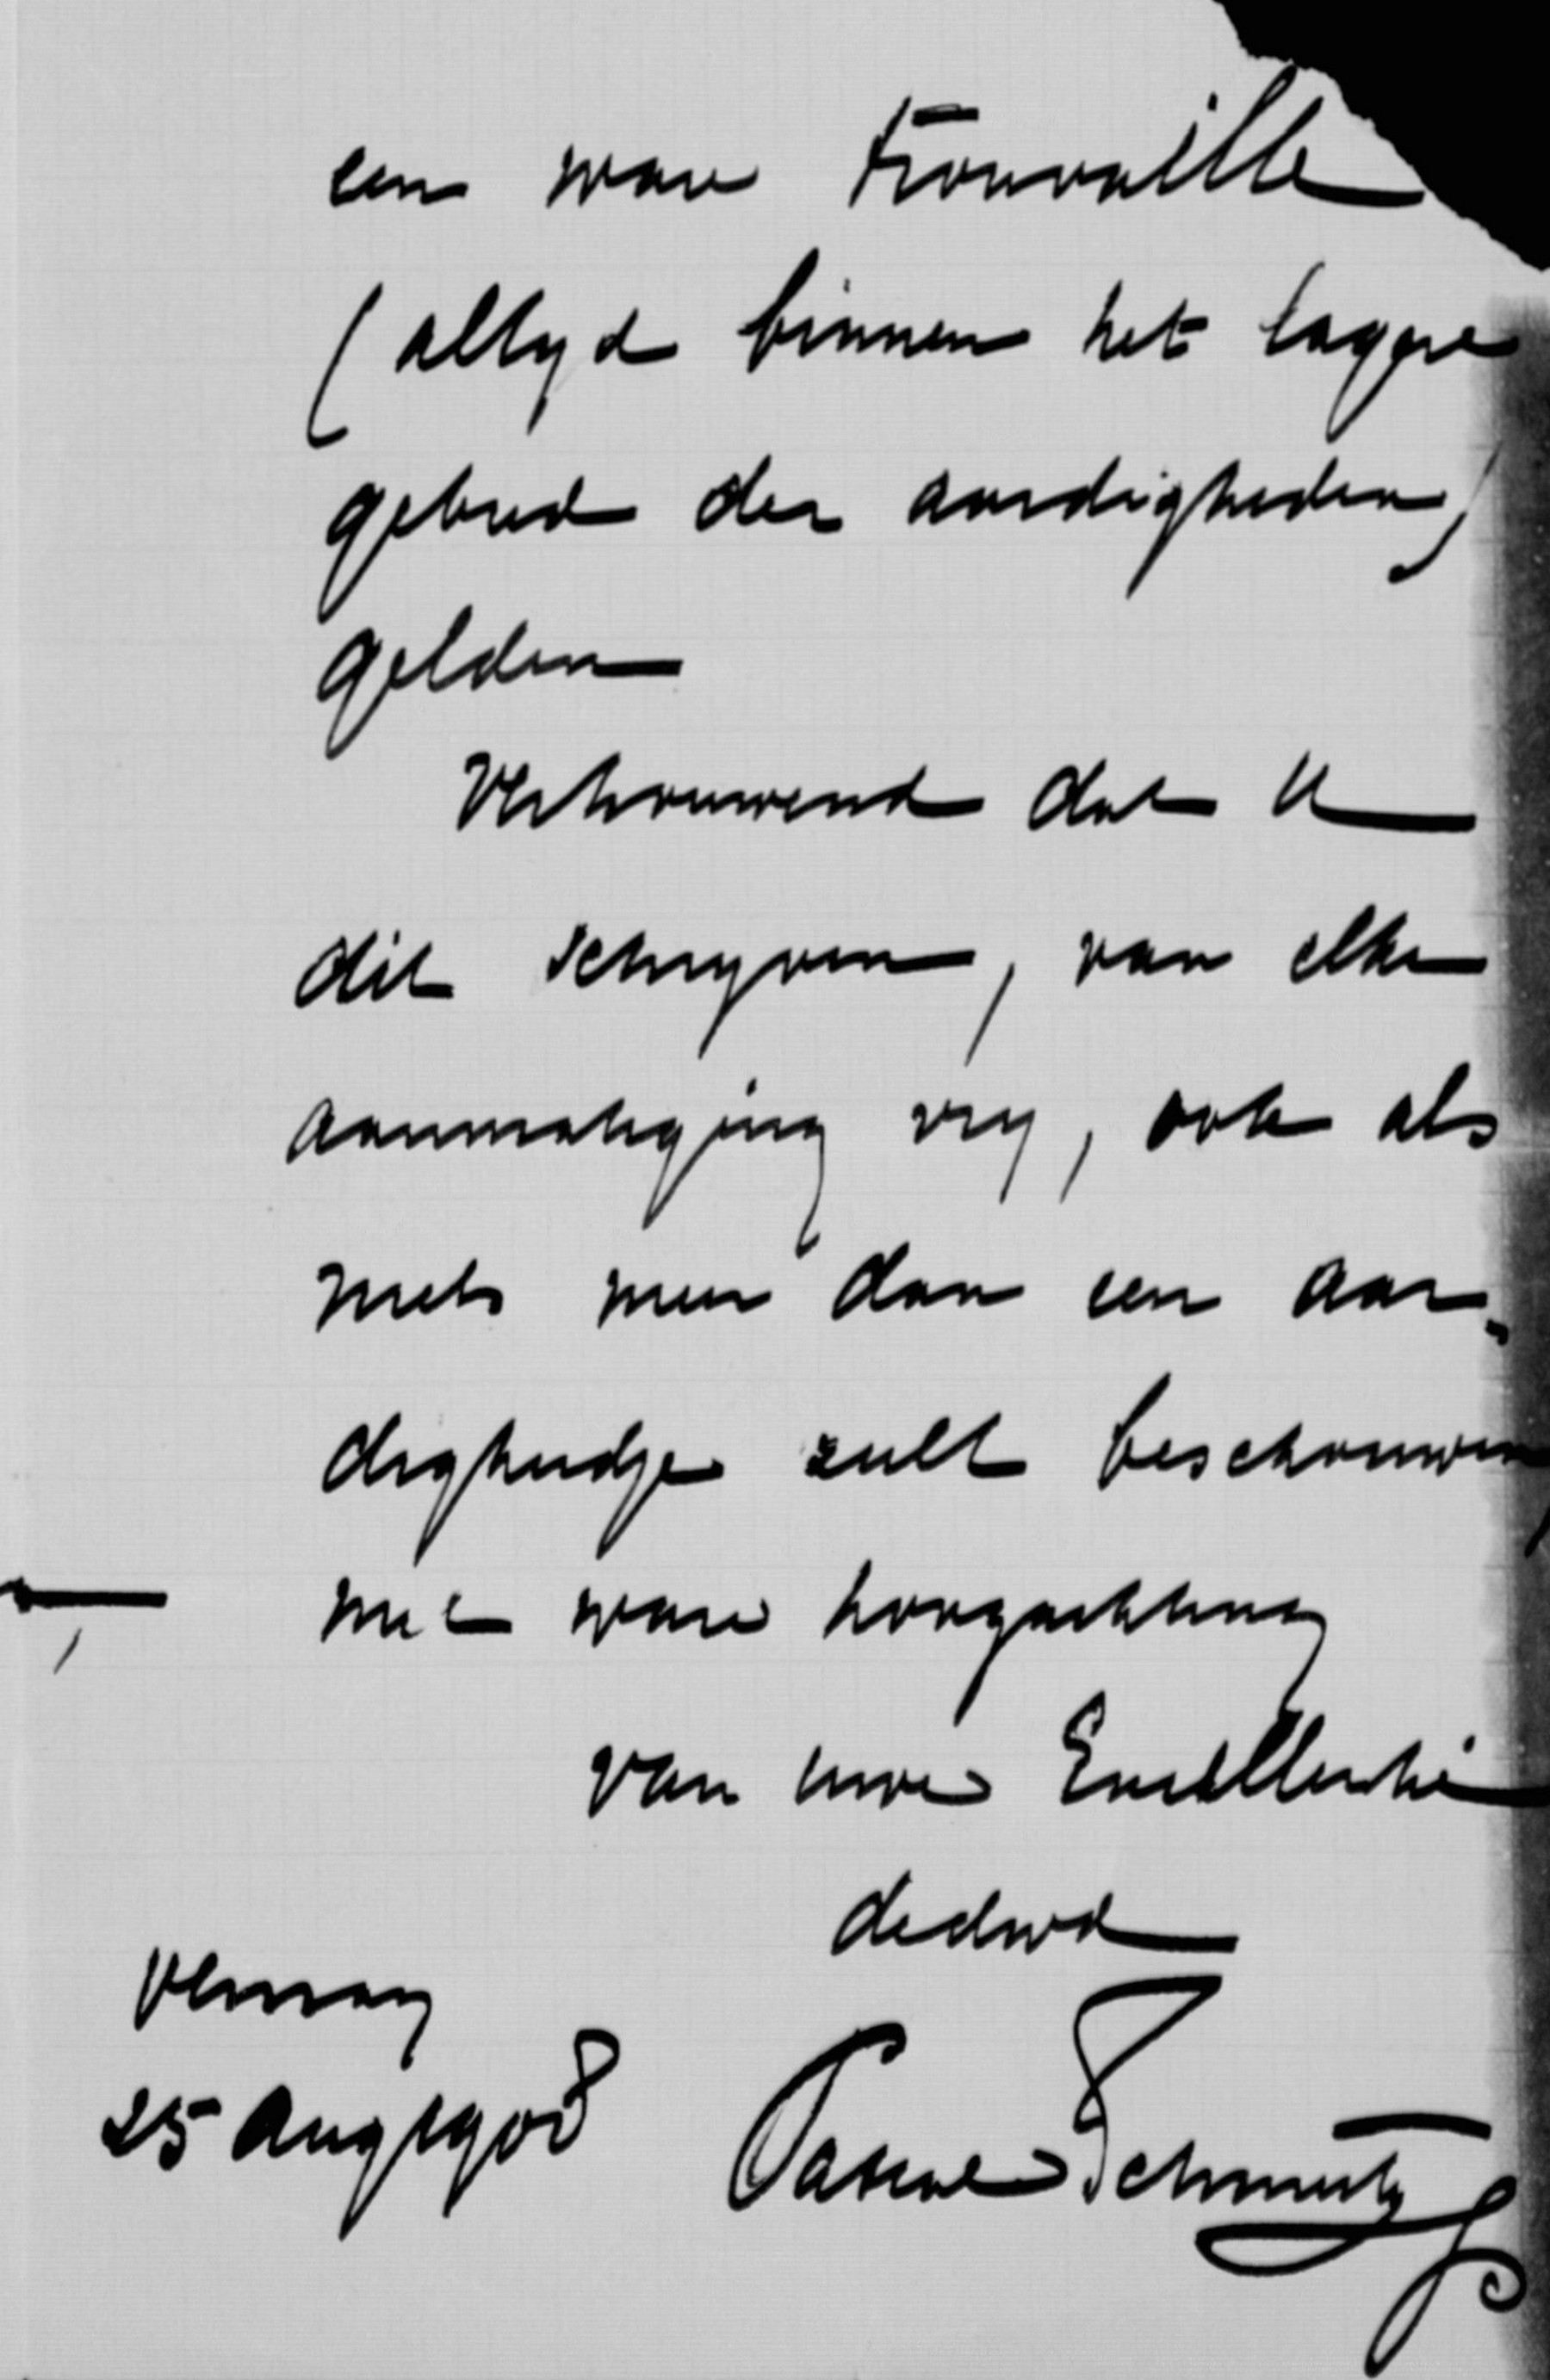 een ware trouvaille
(altyd binnen het lagere
gebied der aardigheden)
gelden
Vertrouwend dat U
dit schryven, van elke
aanmatiging vry, ook als
niets meer dan een aar-
digheidje zult beschouwen
met ware hoogachting
van uwe Excellentie
dedwd
Vernay
25 Aug 1908
Schmitz